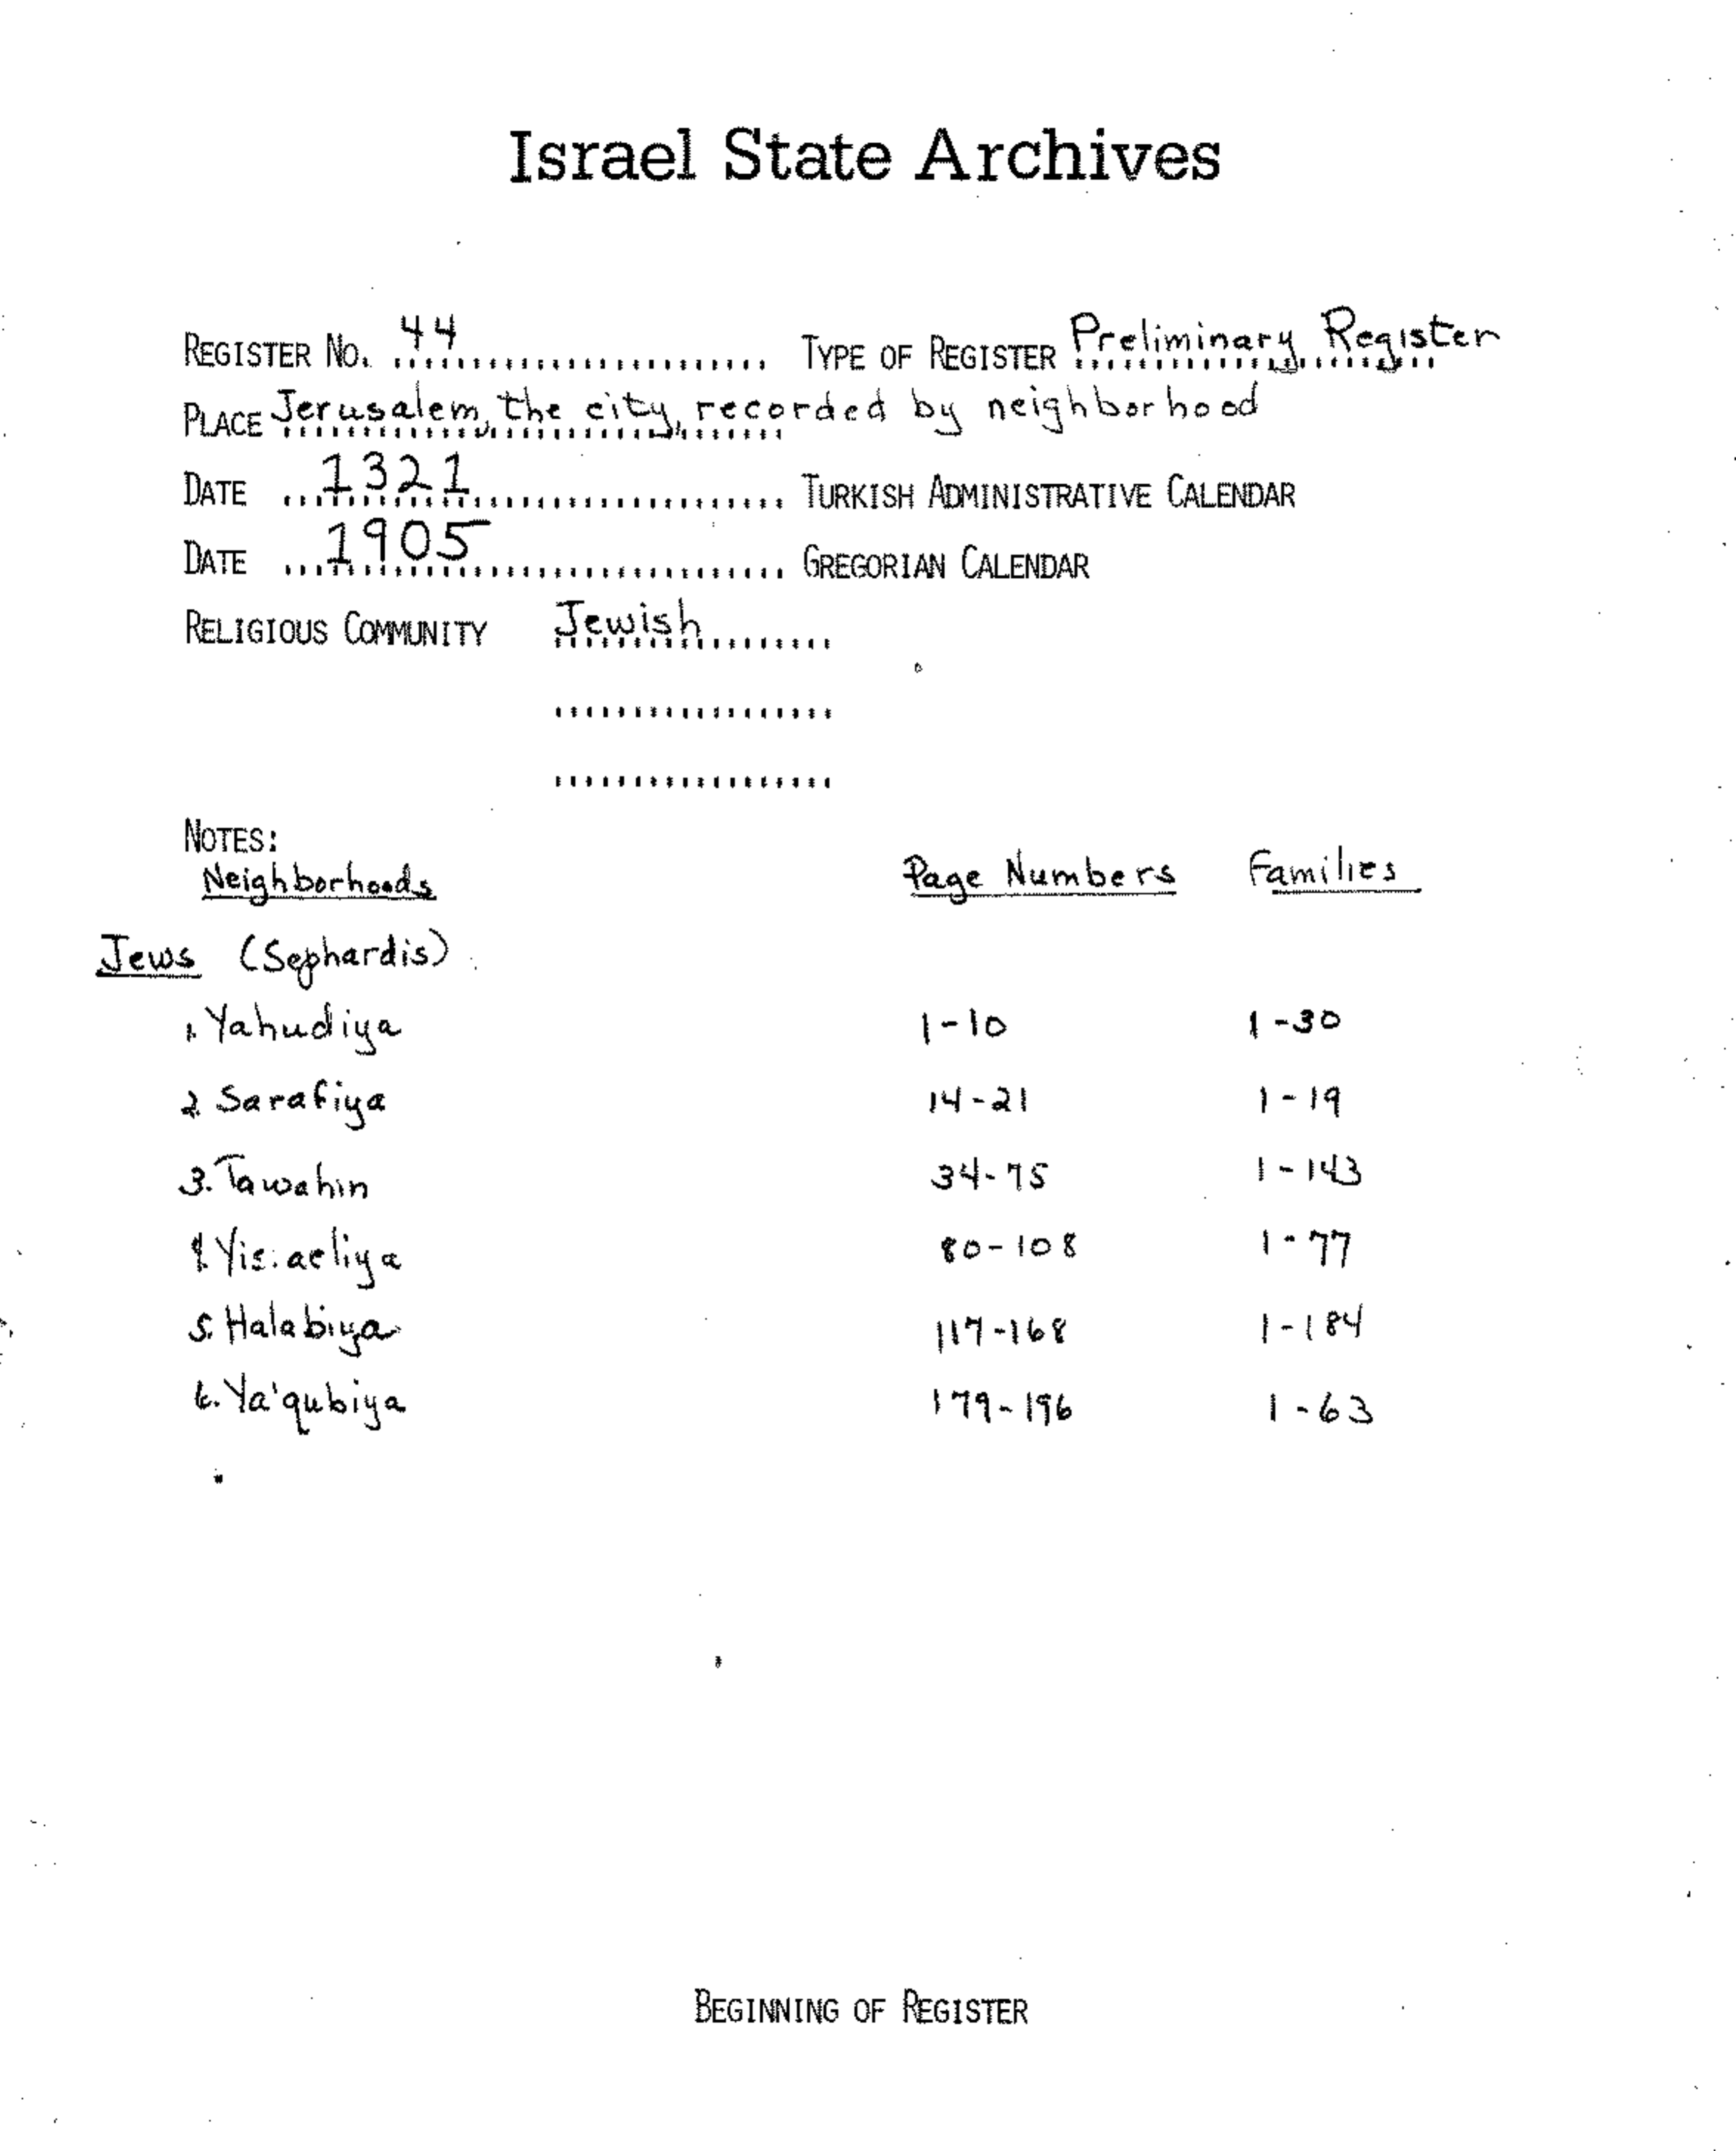 Israel State Archives
REGISTER NO. 44 TYPE OF REGISTER Preliminary Register
PLACE Jerusalem, the city, recorded by neighborhood
DATE 1321 TURKISH ADMINISTRATIVE CALENDAR
DATE 1905 GREGORIAN CALENDAR
RELIGIOUS COMMUNITY Jewish
NOTES:
Neighborhoods Page Numbers Families
Jews (Sephardis)
1. Yahudiya 1-10 1-30
2. Sarafiya 14-21 1-19
3. Tawahin 34-75 1-143
4. Yisraeliya 80-108 1-77
5. Halabiya 117-168 1-184
6. Ya'qubiya 179-196 1-63
BEGINNING OF REGISTER